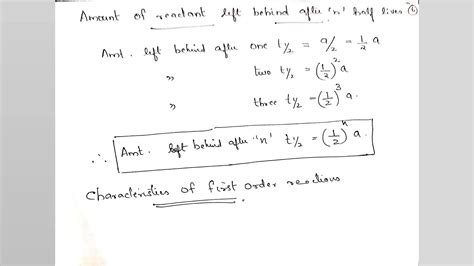 Amount of reactant left behind after 'n' half lives
Amt. left behind after one t½ = a/2 = ½ a
" two t½ = (1/2)² a
" three t½ = (1/2)³ a.
∴ Amt. left behind after "n" t½ = (1/2)ⁿ a.
Characteristics of first order reactions.